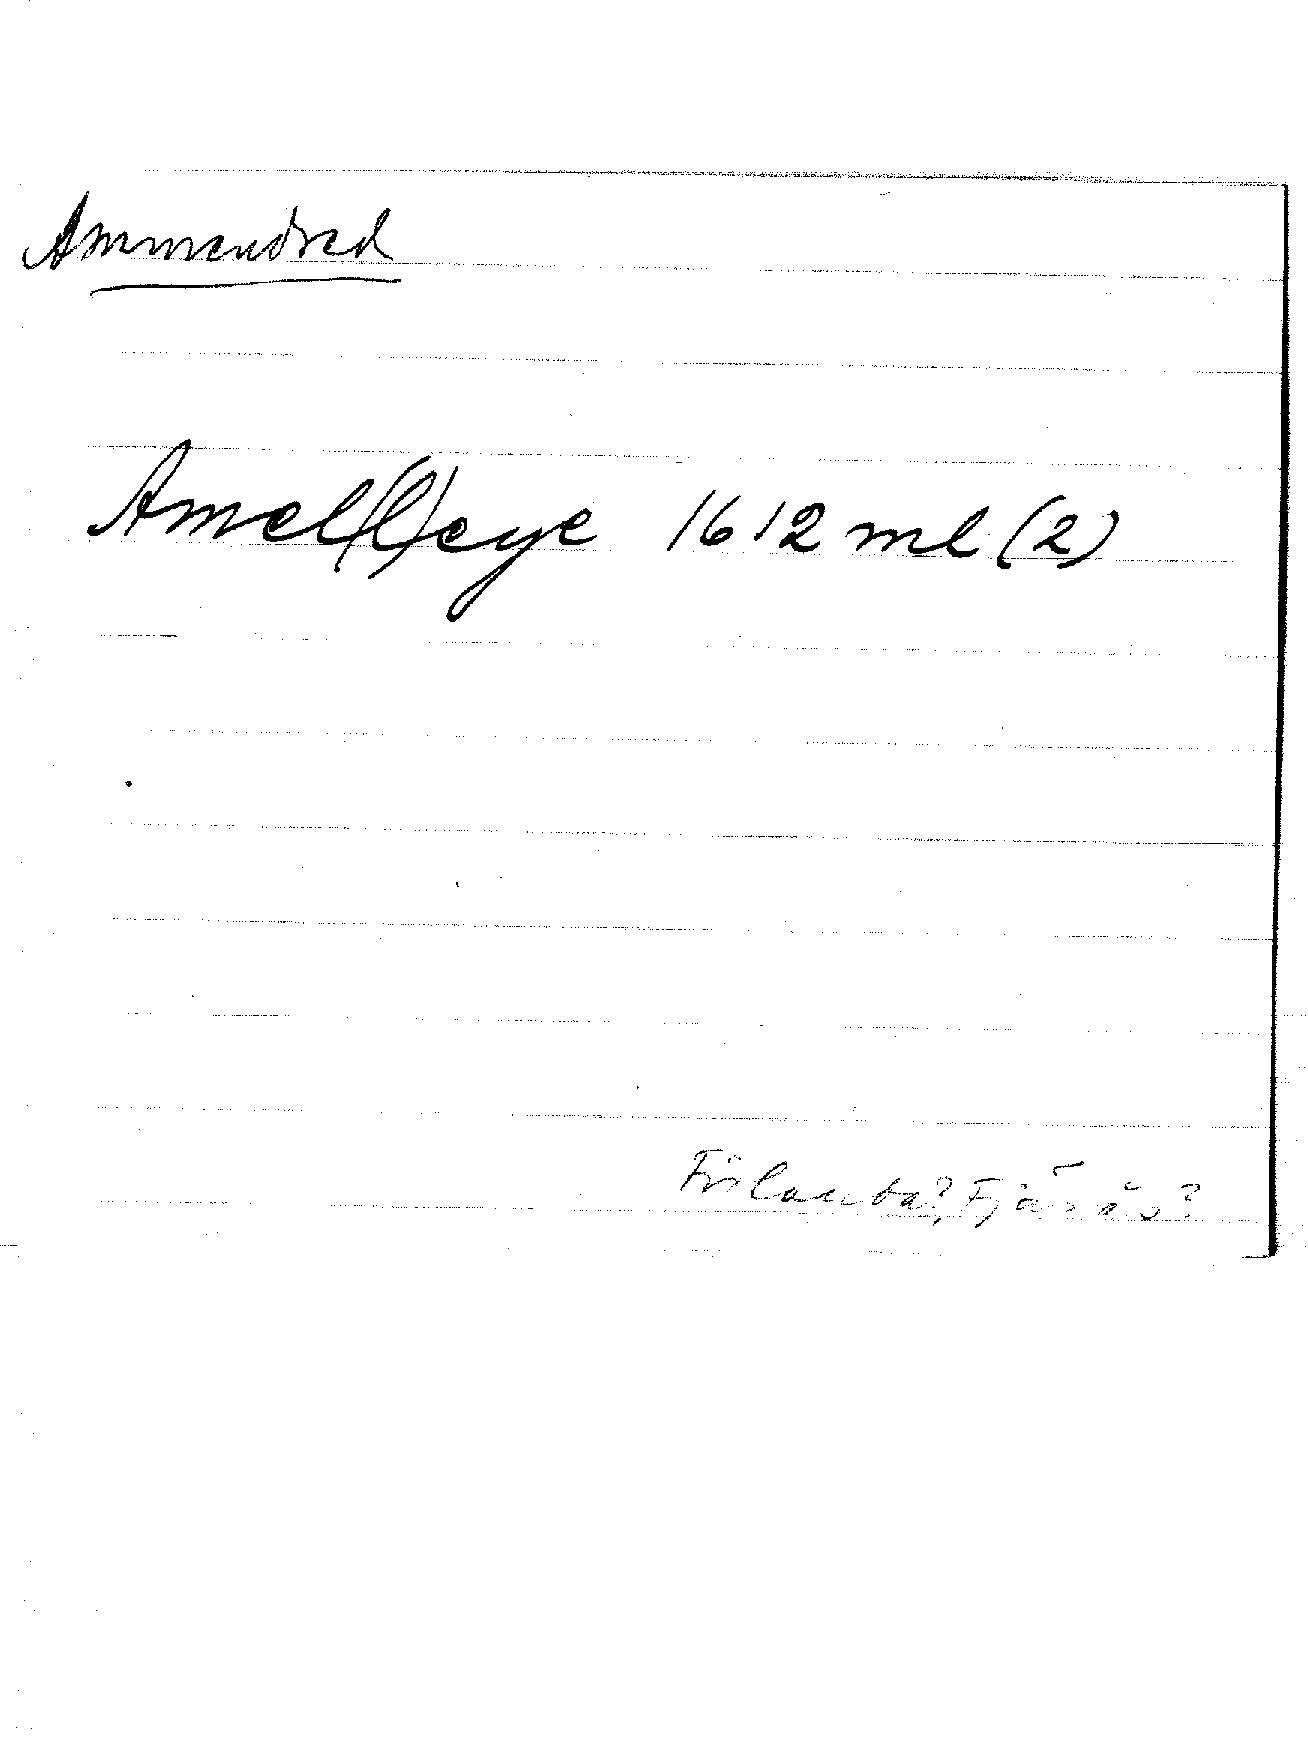 Ammendred
Amel(l)eye 1612 ml (2)
Förlanda?, Fjärås?